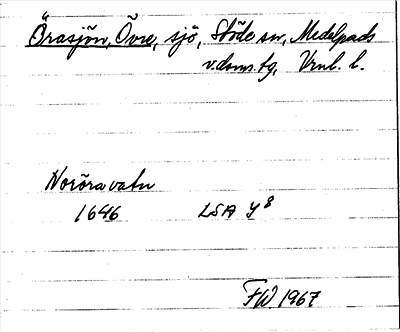 Örasjön, Övre, sjö, Stöde sn, Medelpads
v.doms.tg, Vrnl. l.
Norõravatn
1646 LSA Y 8
FW 1967